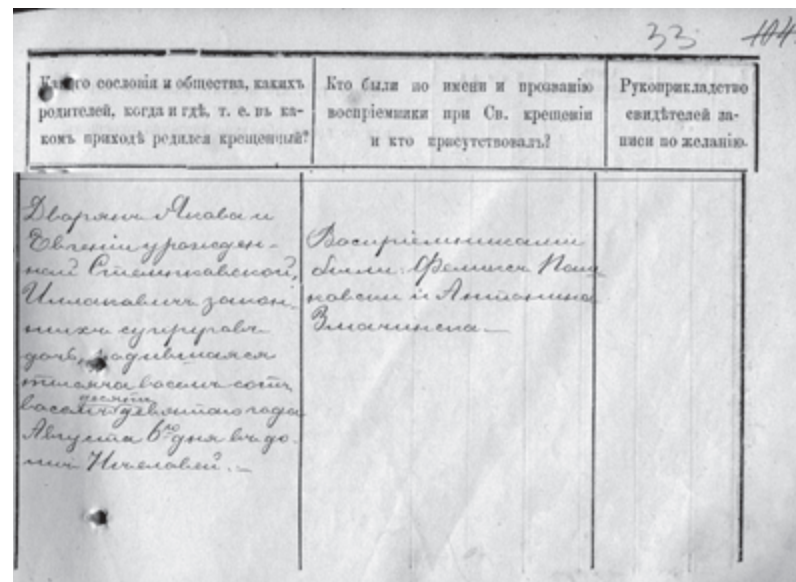 33 104
Какого сословія и общества, какихъ
родителей, когда и гдѣ, т. е. въ ка-
комъ приходѣ родился крещенный?
Кто были по имени и прозванію
воспріемники при Св. крещеніи
и кто присутствовалъ?
Рукоприкладство
свидѣтелей за-
писи по желанію.
Дворянъ Якова и
Евгеніи урожден-
ной
закон-
ныхъ супруговъ
дочь, родившаяся
тысяча восемь сотъ
восемьдесятъ девятаго года
Августа 6го дня въ
Воспріемниками
были: Феликсъ
и Антонина